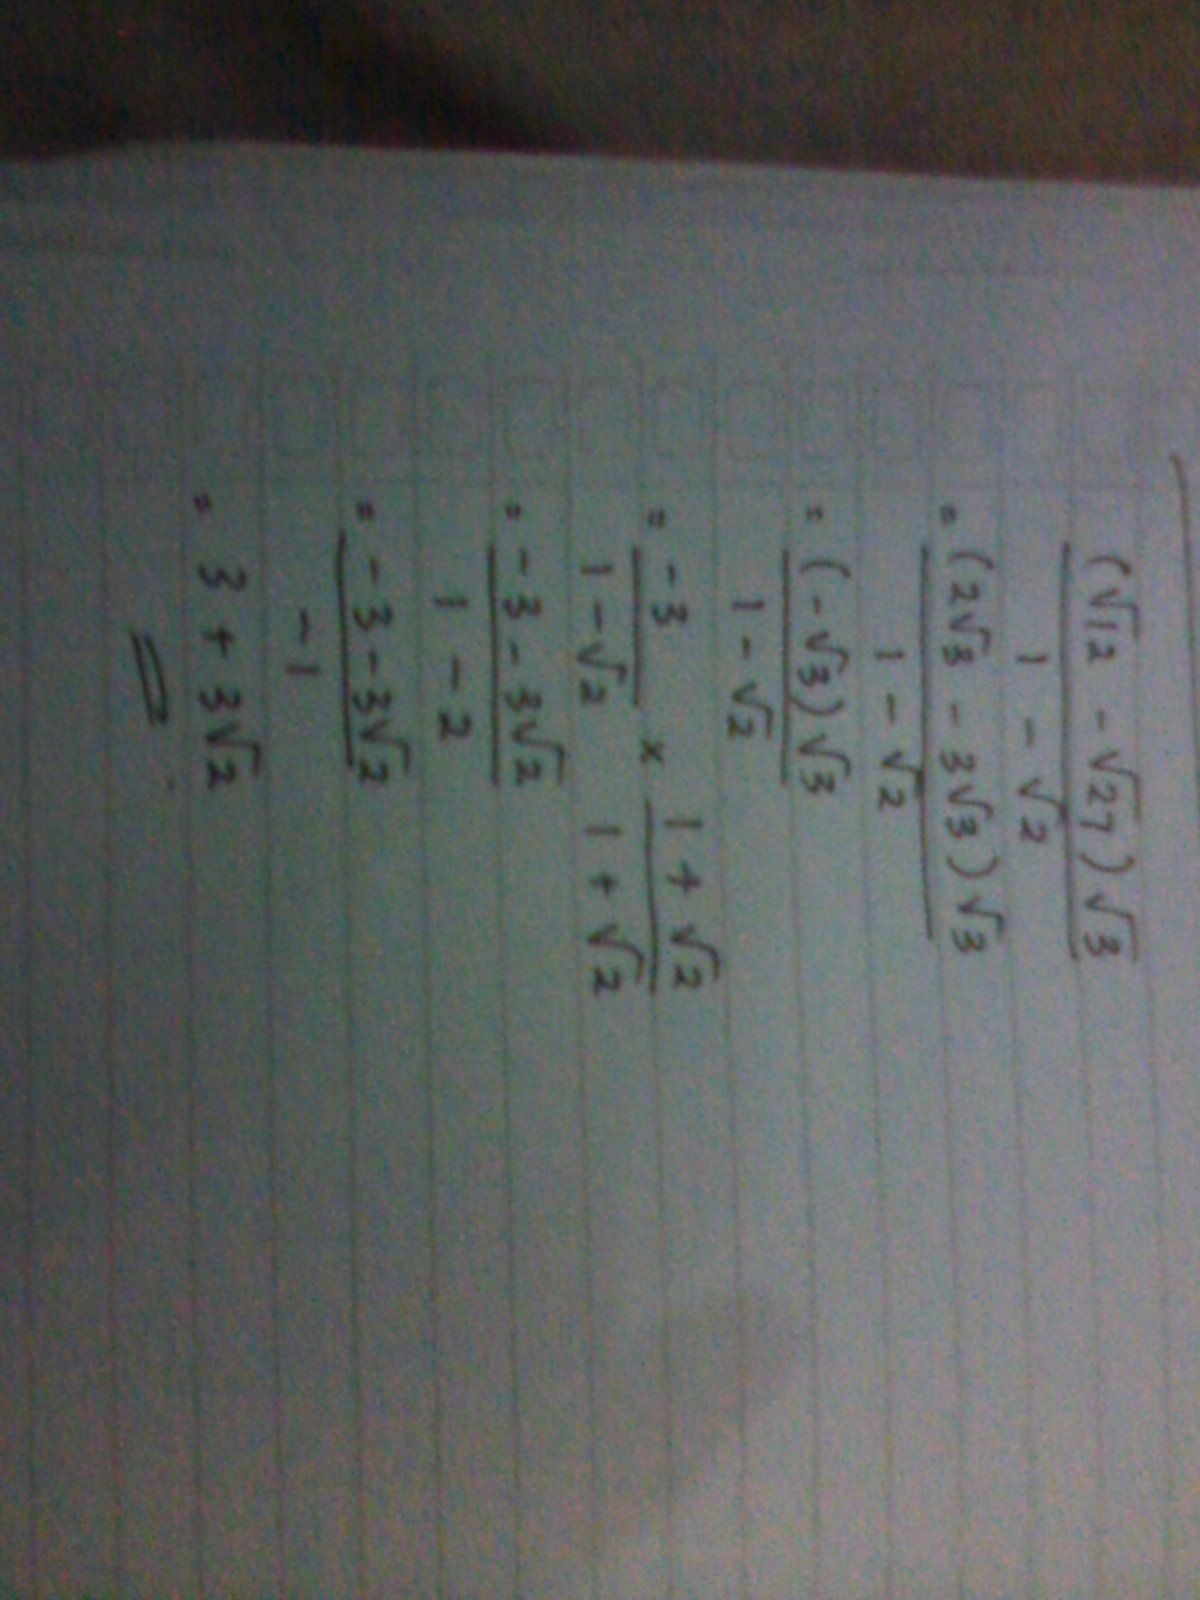 (√12 - √27) √3
1 - √2
= (2√3 - 3√3) √3
1 - √2
= (-√3) √3
1 - √2
= -3 x 1 + √2
1 - √2 1 + √2
= -3 - 3√2
1 - 2
= -3 - 3√2
-1
= 3 + 3√2